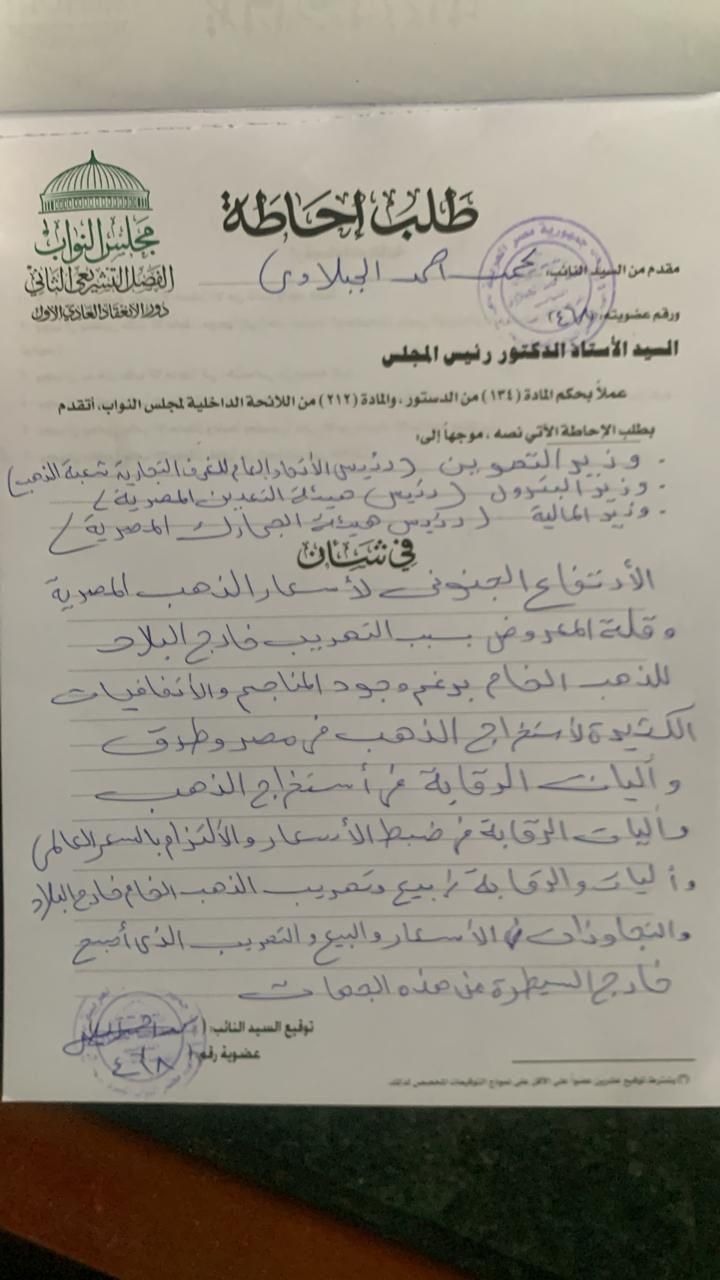 مجلس النواب
الفصل التشريعي الثاني
دور الانعقاد العادي الأول
طلب إحاطة
مقدم من السيد النائب: محمد احمد الجبلاوى
ورقم عضويته: ٤٦٨
السيد الأستاذ الدكتور رئيس المجلس
عملاً بحكم المادة (١٣٤) من الدستور، والمادة (٢١٢) من اللائحة الداخلية لمجلس النواب، أتقدم
بطلب الإحاطة الآتي نصه، موجهاً إلى:
. وزير التموين (رئيس الأتحاد العام للغرف التجارية شعبة الذهب)
. وزير البترول (رئيس هيئة التعدين المصرية)
. وزير المالية (رئيس هيئة الجمارك المصرية)
في شأن
الأرتفاع الجنونى لأسعار الذهب المصرية
وقلة المعروض بسبب التهريب خارج البلاد
للذهب الخام برغم وجود المناجم والأتفاقيات
الكثيرة لأستخراج الذهب فى مصر وطرق
وأليات الرقابة فى أستخراج الذهب
وأليات الرقابة فى ضبط الأسعار والألتزام بالسعر العالمى
وأليات والرقابة لبيع وتهريب الذهب الخام خارج البلاد
والتجاوزات فى الأسعار والبيع والتهريب الذى أصبح
خارج السيطرة من هذه الجهات
توقيع السيد النائب: (
عضوية رقم: ( ٤٦٨
(*) يشترط توقيع عشرين عضواً على الأقل على نموذج التوقيعات المخصص لذلك.